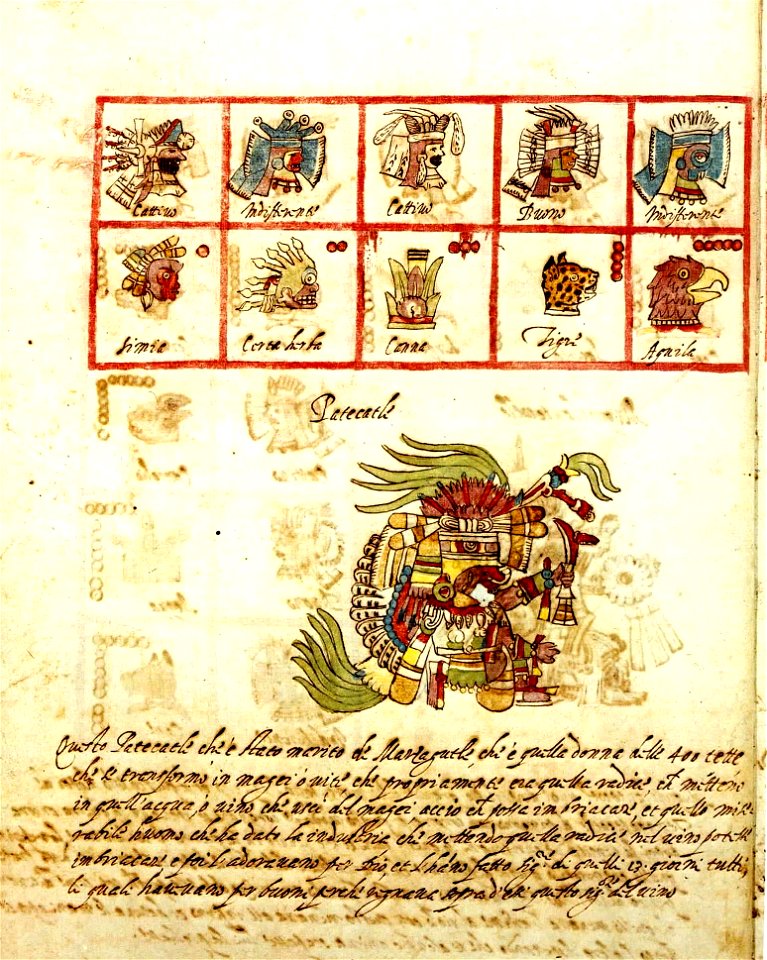 Cattivo Indiferente Cattivo Buono Indiferente
Simia Certa herba Canna Tigre Aquila
Patecatle
Questo Patecatle che è stato marito de che è quella donna delle 400 tette
che se transformò in magei ò vite, che propriamente era quella radice, ch metteno
in quell'acqua, ò vino che uscì del magei, acciò ch possa imbriacare, et quello mise
rabile huomo che ha dato la industria che mettendo quella radice nel vino potesse
imbriacare e poi l'adoravano per Dio, et l'hano fatto sig.re di quelli 13. giorni tutti,
li quali havevano per buoni perche regnava sopra d'essi questo sig.re del vino